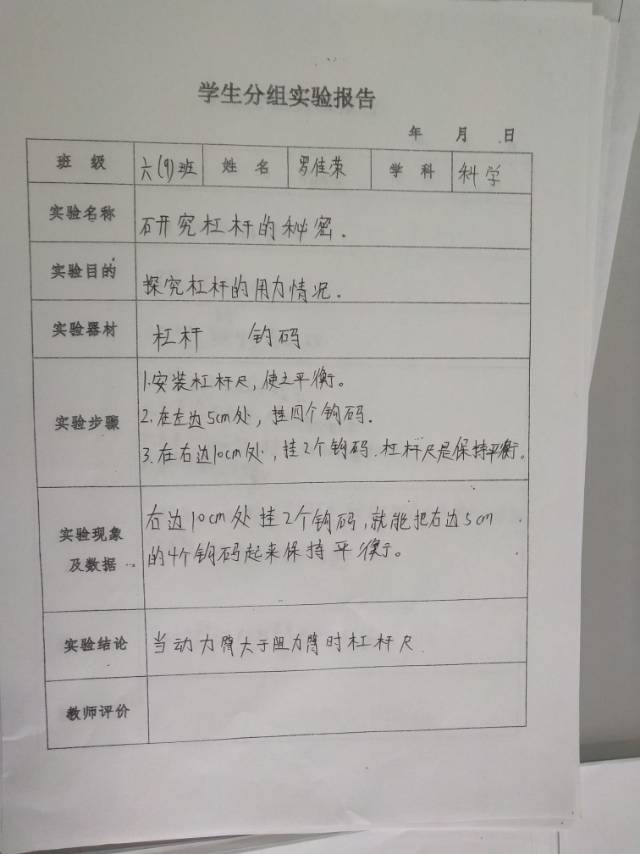 学生分组实验报告
年 月 日
班 级 六(9)班 姓 名 罗佳荣 学 科 科学
实验名称 研究杠杆的秘密.
实验目的 探究杠杆的用力情况.
实验器材 杠杆 钩码
实验步骤
1.安装杠杆尺,使之平衡。
2.在左边5cm处,挂四个钩码.
3.在右边10cm处,挂2个钩码.杠杆尺是保持平衡。
实验现象及数据
右边10cm处挂2个钩码,就能把右边5cm
的4个钩码起来保持平衡。
实验结论 当动力臂大于阻力臂时杠杆尺
教师评价